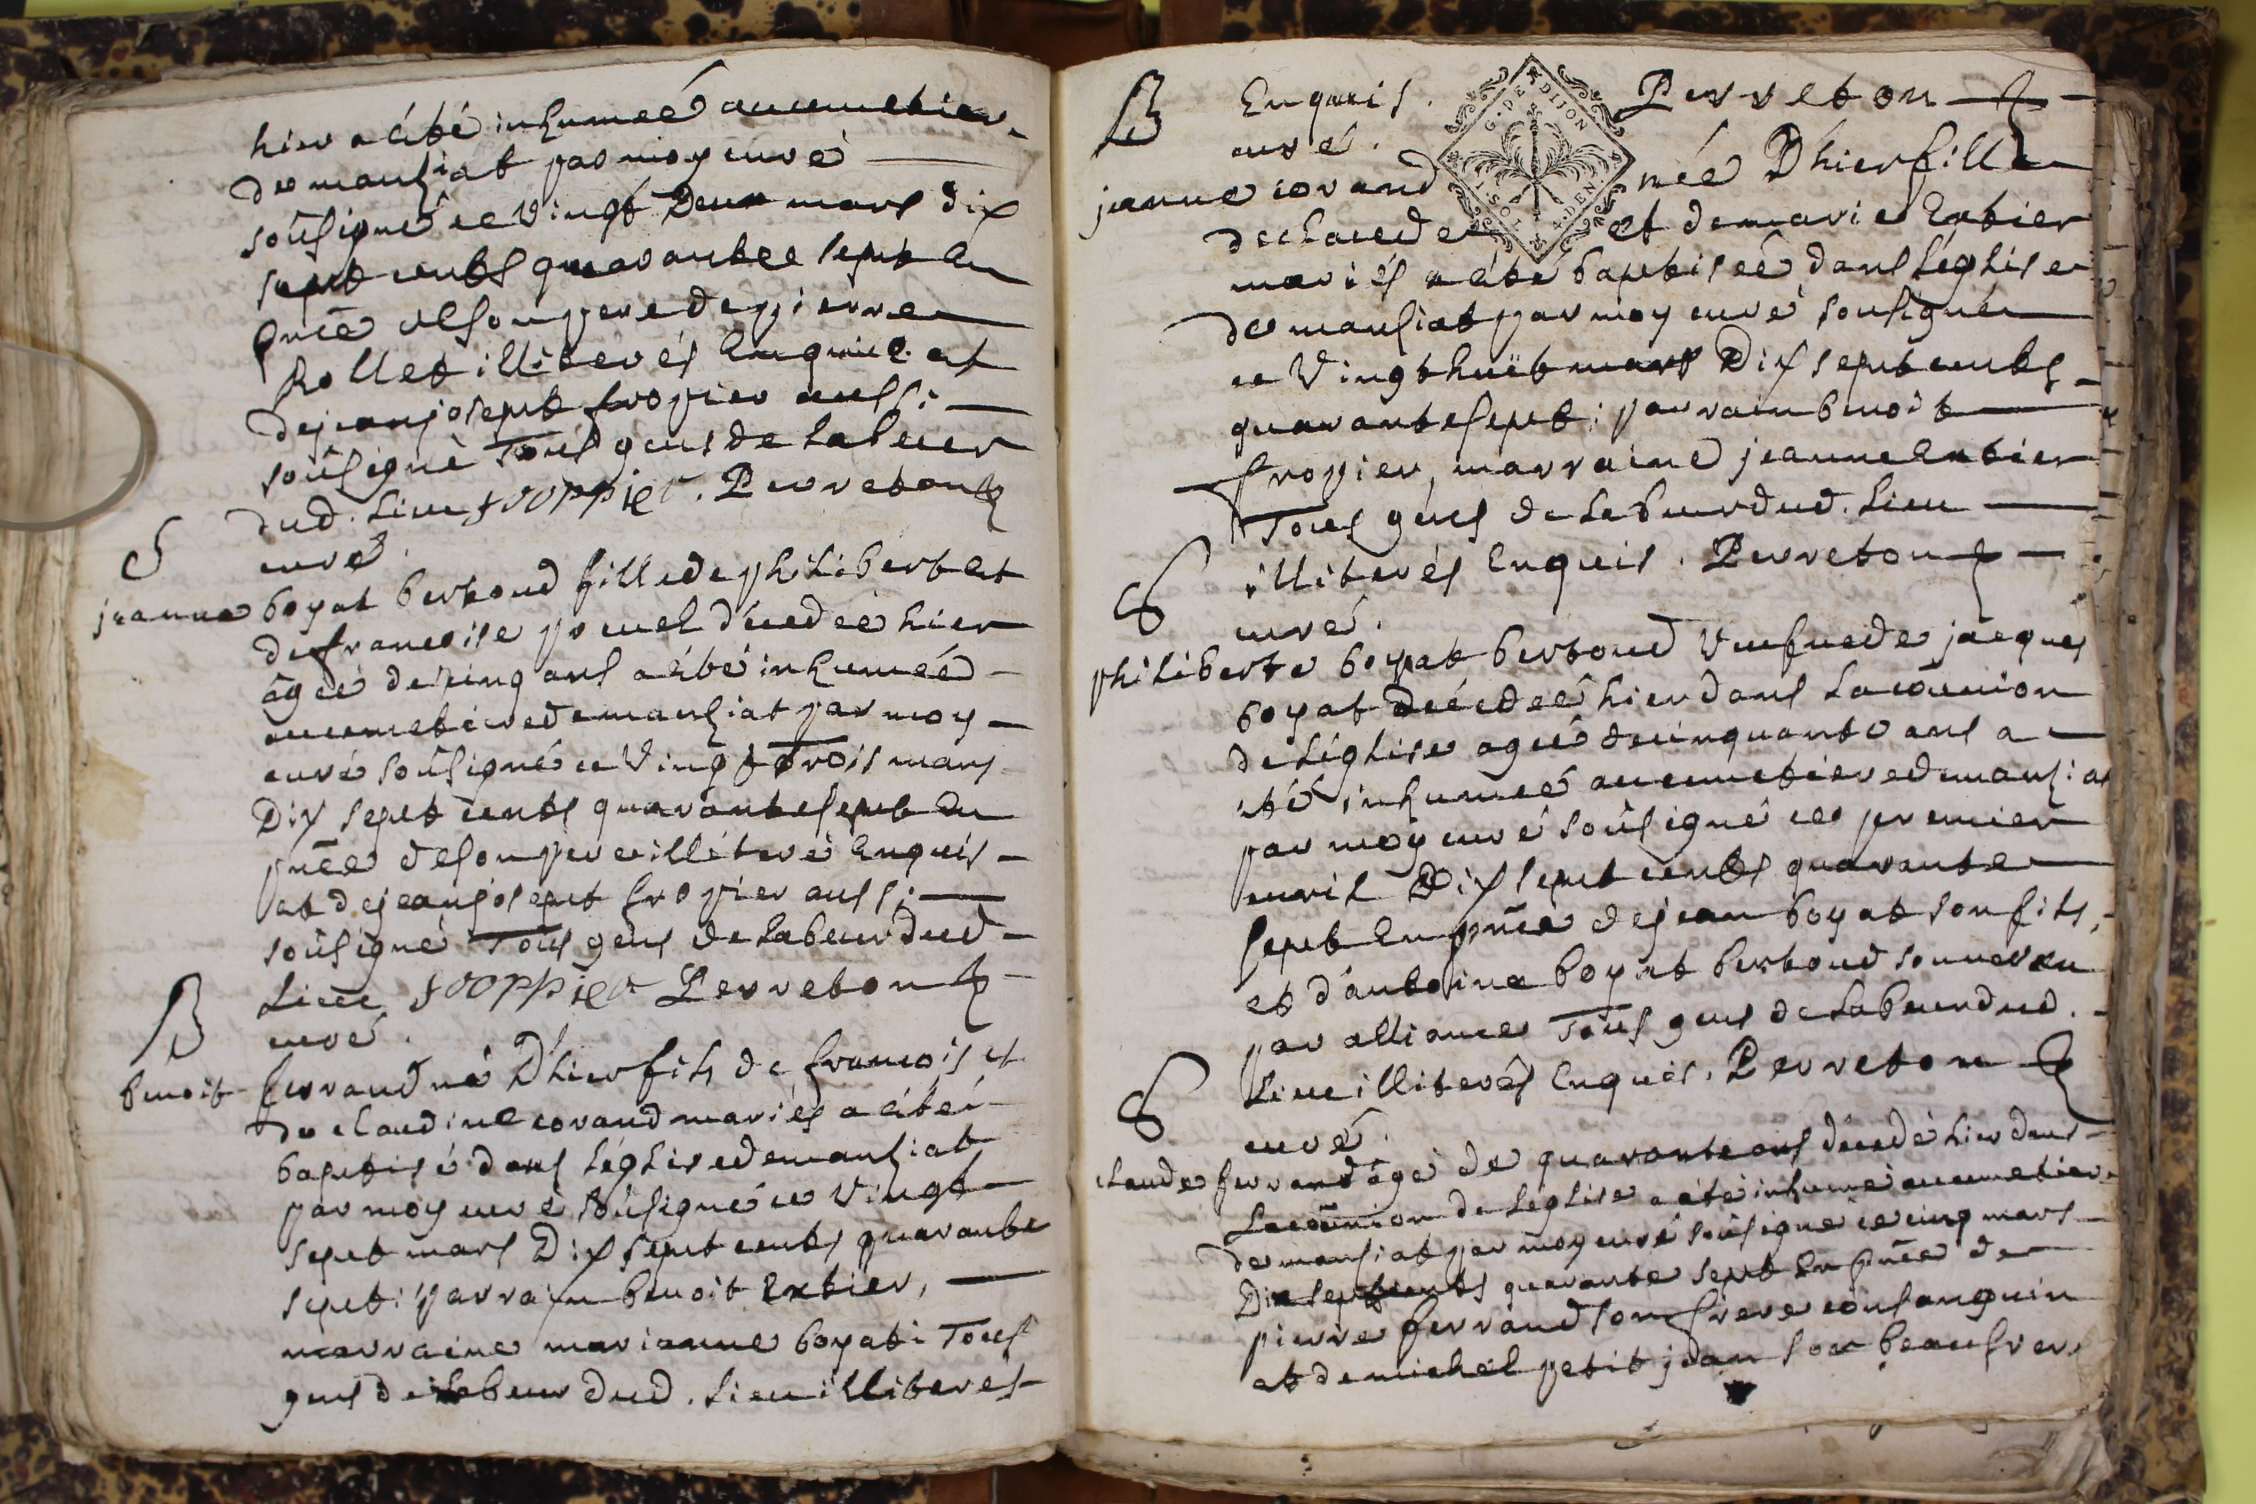 hier a été inhumée au cemetier
de manziat par moy curé
soûsigné ce vingt Deux mars dix
sept cents quarantee sept En
pnce de son pere de pierre
Rollet illiterés Enquis et
de jean josept fropier aussi
soûsigné Tous gens de labeur
dud. lieu froppier. Perreton
curé.
S
jeanne boyat bertoud fille de philibert et
de francoise pomel décedée hier
âgée de cinq ans a été inhumée
au cemetiere de manziat par moy
curé soûsigné ce Vingt trois mars
Dix sept cents quarante sept en
pnce de son pere illiteré Enquis
et de jean josept fropier aussi
soûsigné Tous gens de labeur dud
lieu froppier Perreton
curé.
B
benoit ferrand né D'hier fils de francois et
de claudine corand mariés a été
baptisé dans l'église de manziat
par moy curé soûsigné ce Vingt
sept mars Dix sept cents quarante
sept: parrain benoit Extier,
marraine marianne boyat: Tous
gens de labeur dud. lieu illiterés
B
Enquis. Perreton
curé.
jeanne corand née D'hier fille
de claude et de marie Extier
mariés a été baptisée dans l'église
de manziat par moy curé sousigné
ce Vingt huit mars Dix sept cents
quarante sept: parrain benoit
fropier, marraine jeanne Extier
Tous gens de labeur dud. lieu
illiterés Enquis. Perreton
curé.
S
philiberte boyat bertoud Veufve de jacques
boyat décedée hier dans la coũnion
de l'église agée de cinquante ans a
été inhumée au cemetiere de manziat
par moy curé soûsigné ce premier
avril Dix sept cents quarante
sept En pnce de jean boyat son fils,
et d'antoine boyat bertoud son neveu
par alliance Tous gens de labeur dud.
lieu illiterés Enquis. Perreton
curé.
S
claude ferrand âgé de quarante ans décedé hier dans
la coũnion de l'église a été inhumé au cemetier
de manziat par moy curé soûsigné ce cinq mars
Dix sept cents quarante sept En pnce de
pierre ferrand son frere consanguin
et de michel petit jean son beaufrere
G. DE DIJON
1. SOL 4. DEN